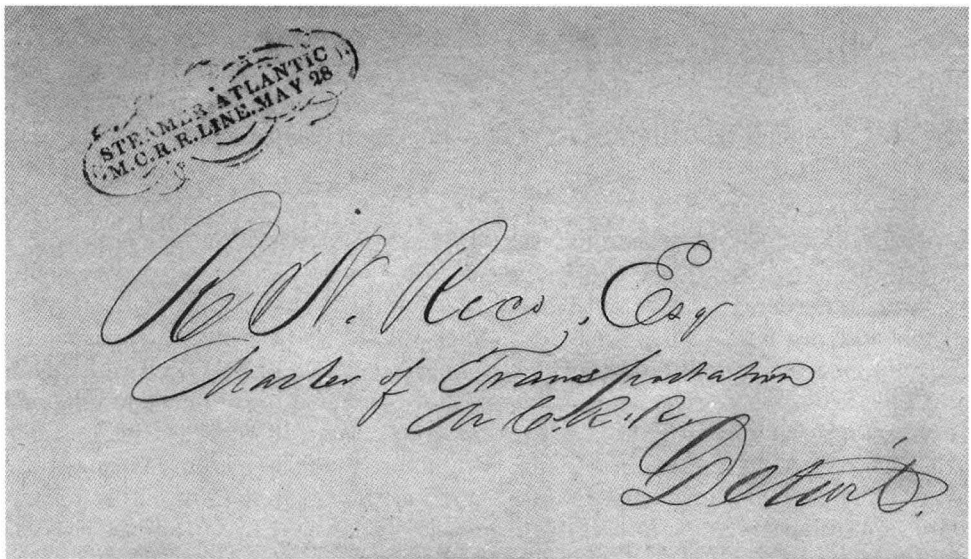 STEAMER ATLANTIC
M.C.R.R. LINE. MAY 28
R. N. Rice, Esq
Master of Transportation
M C. R. R.
Detroit.